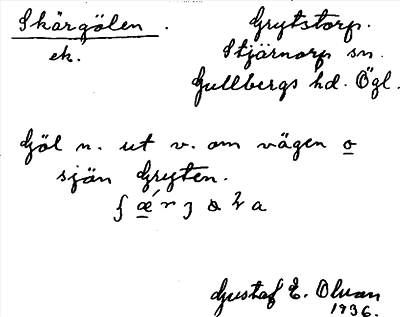 Skärgölen. Grytstorp.
ek. Stjärnorp sn.
Gullbergs hd. Ögl.
Göl n. ut v. om vägen o
sjön Gryten.
Gustaf E. Olvan
1936.